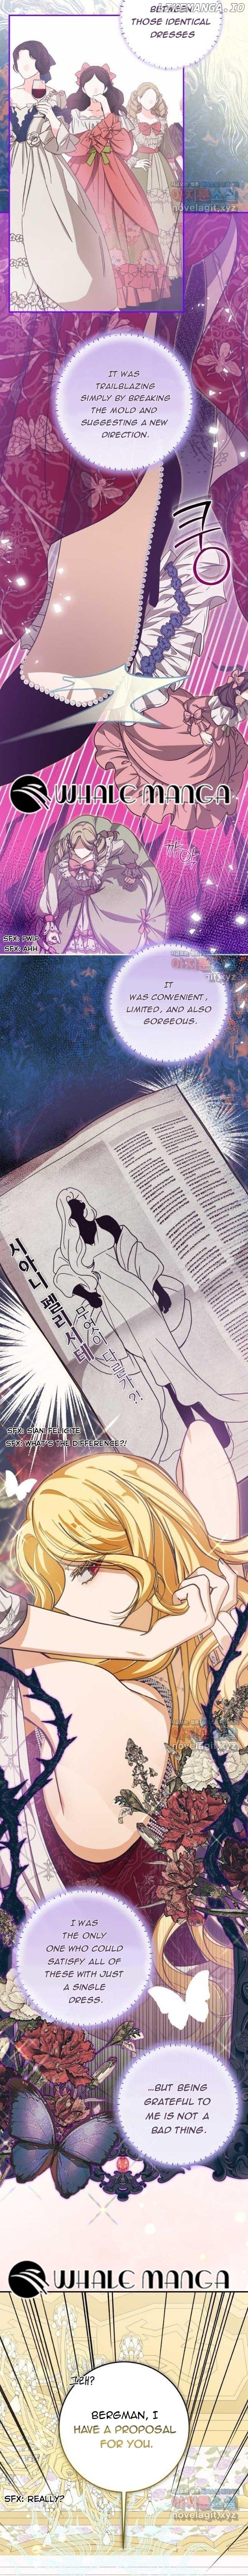 BETWEEN
THOSE IDENTICAL
DRESSES
novelagit.xyz
IT WAS
TRAILBLAZING
SIMPLY BY BREAKING
THE MOLD AND
SUGGESTING A NEW
DIRECTION.
쿵
WHALE MANGA
SFX: PWIP
SFX: AHH
IT
WAS CONVENIENT,
LIMITED, AND ALSO
GORGEOUS.
시아니 펠리시테
SFX: SIANI FELICITE
SFX: WHAT'S THE DIFFERENCE?!
novelagit.xyz
I WAS
THE ONLY
ONE WHO COULD
SATISFY ALL OF
THESE WITH JUST
A SINGLE
DRESS.
...BUT BEING
GRATEFUL TO
ME IS NOT A
BAD THING.
WHALE MANGA
그래?
BERGMAN, I
HAVE A PROPOSAL
FOR YOU.
SFX: REALLY?
novelagit.xyz